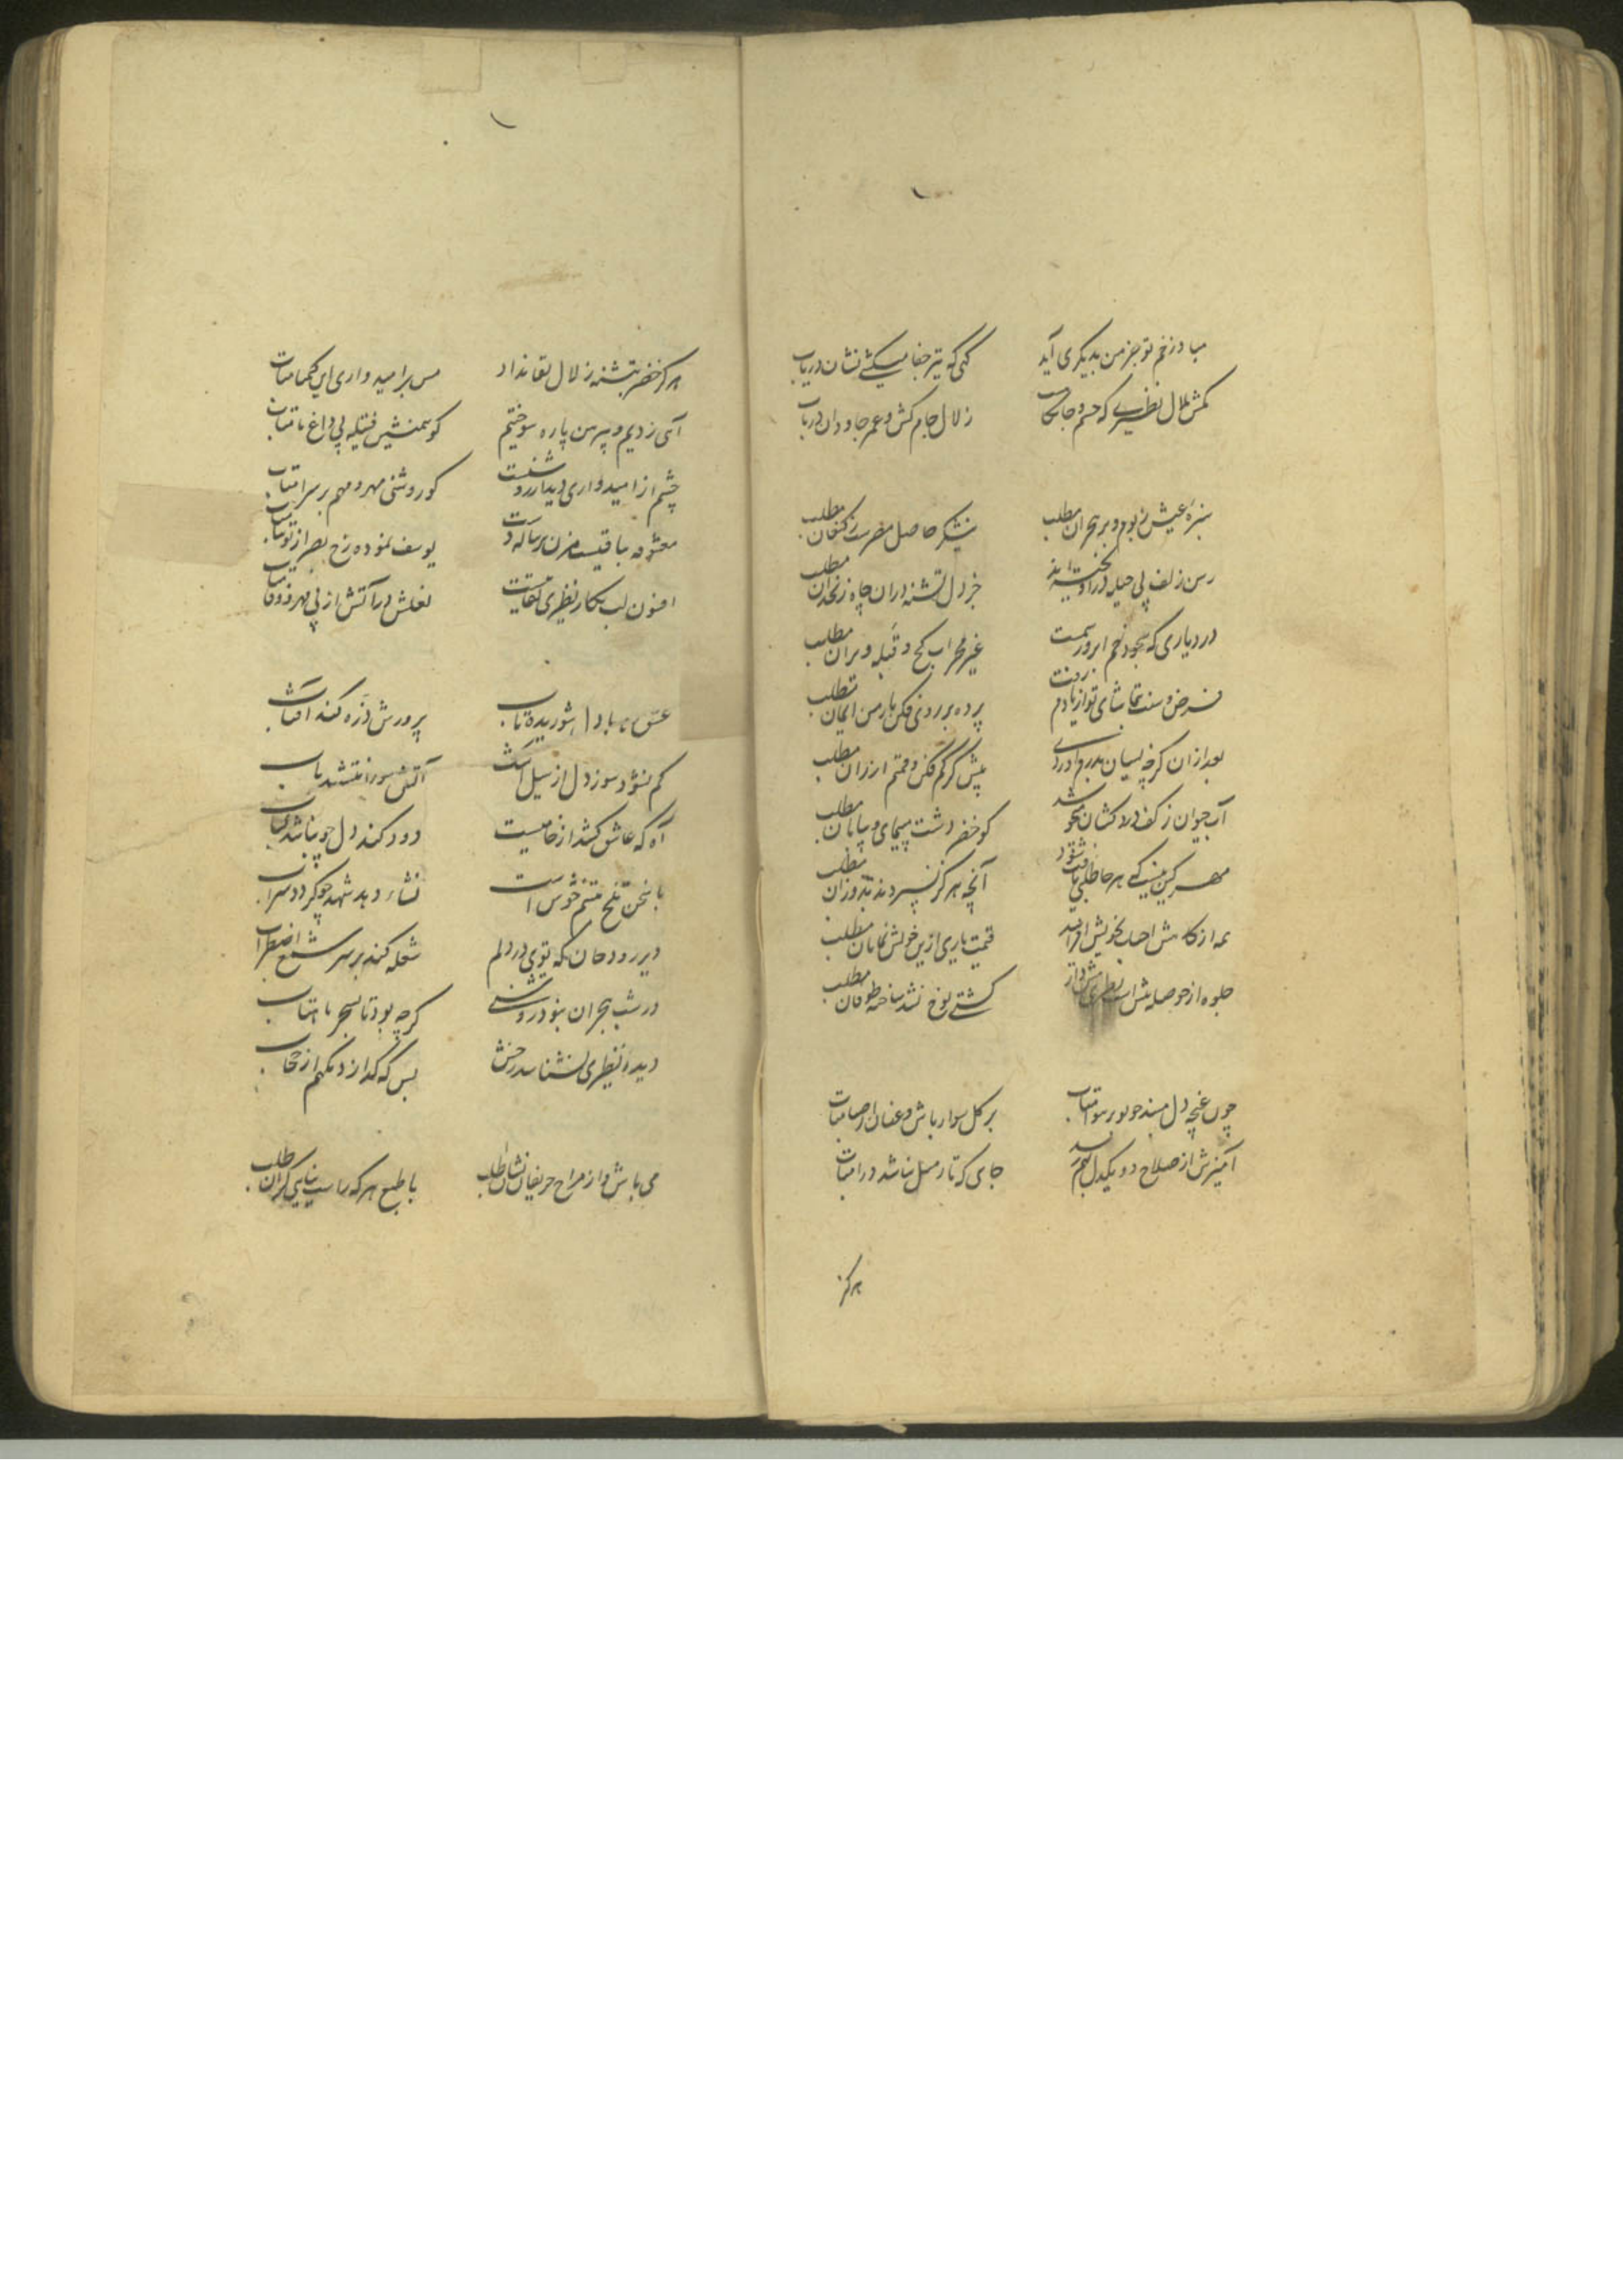 مباد زخم تو بجز من بدیگری آید
کمی که تیر جفا میکشی نشان دریاب
مکش ملال نظیری که جسم و جانکاهست
زلال جام کش و عمر جاودان دریاب
سبزه عیش ز بوم و بر هجران مطلب
نیشکر حاصل مصرست ز کنعان مطلب
رسن زلف پی حیله در آویخته‌اند
جز دل تشنه در آن چاه زنخدان مطلب
در دیاری که سجود خم ابرو رسمست
غیر محراب کج و قبله ویران مطلب
فرض و سنت بتماشای تو از یادم رفت
پرده بر روی فکن باز من ایمان مطلب
بعد ازان کز چه بسیان بدرم آوردی
پیش گرگم فکن و قیمتم ارزان مطلب
آب حیوان ز کف دلاکشان میجو
کو خضر دشت پیمای و بیابان مطلب
مهر کین نیست که هر جا طلبی یافت شود
آنچه هرگز نسپردند بدوران مطلب
همه از کاهش احباب بخویش افزایند
قیمت یاری ازین خویش نمایان مطلب
جلوه از حوصله بیش است نظیری
کشتی نوح نشد ساخته طوفان مطلب
چون غنچه دل مبند و بهر سو متاب
بر گل سوار باش و عنان از صبا متاب
آمیزش از صلاح دو یکدل بهم رسد
جای که تار میل نباشد دو تا متاب
هرگز
هرگز خضر بتشنه زلال بقا نداد
مس بر امیدواری این کیمیا متاب
آتش زدیم و پیرهن پاره سوختیم
گو همنشین فتیله پی داغ ما متاب
چشم از امیدواری دیدار روشنست
گو روشنی مهر و مهم بر سرا متاب
معشوقه باقیست
یوسف نموده رخ بصر از توتیا متاب
افسون لب بکار نظیری کفایت
نعلش در آتش از پی مهر و وفا متاب
عشق ناباد دل شوریده تاب
پرورش ذره کند آفتاب
کم نشود سوز دل از سیل اشک
آتش سوزان ننشیند بآب
آه که عاشق کشد از خامیست
دود کند دل چو نباشد کباب
با سخن تلخ تبسم خوش است
نشاء دهد شهد چو گردد شراب
دیر رود جان که توی در دلم
شعله کند بر سر شمع اضطراب
در شب هجران نبود روشنی
گرچه بود تا بسحر ماهتاب
دیده نظیری نشناسد رخش
بس که گدازد نگهم از حجاب
می باش و از مزاح حریفان نشان طلب
با طبع هر که راست نیایی کران طلب